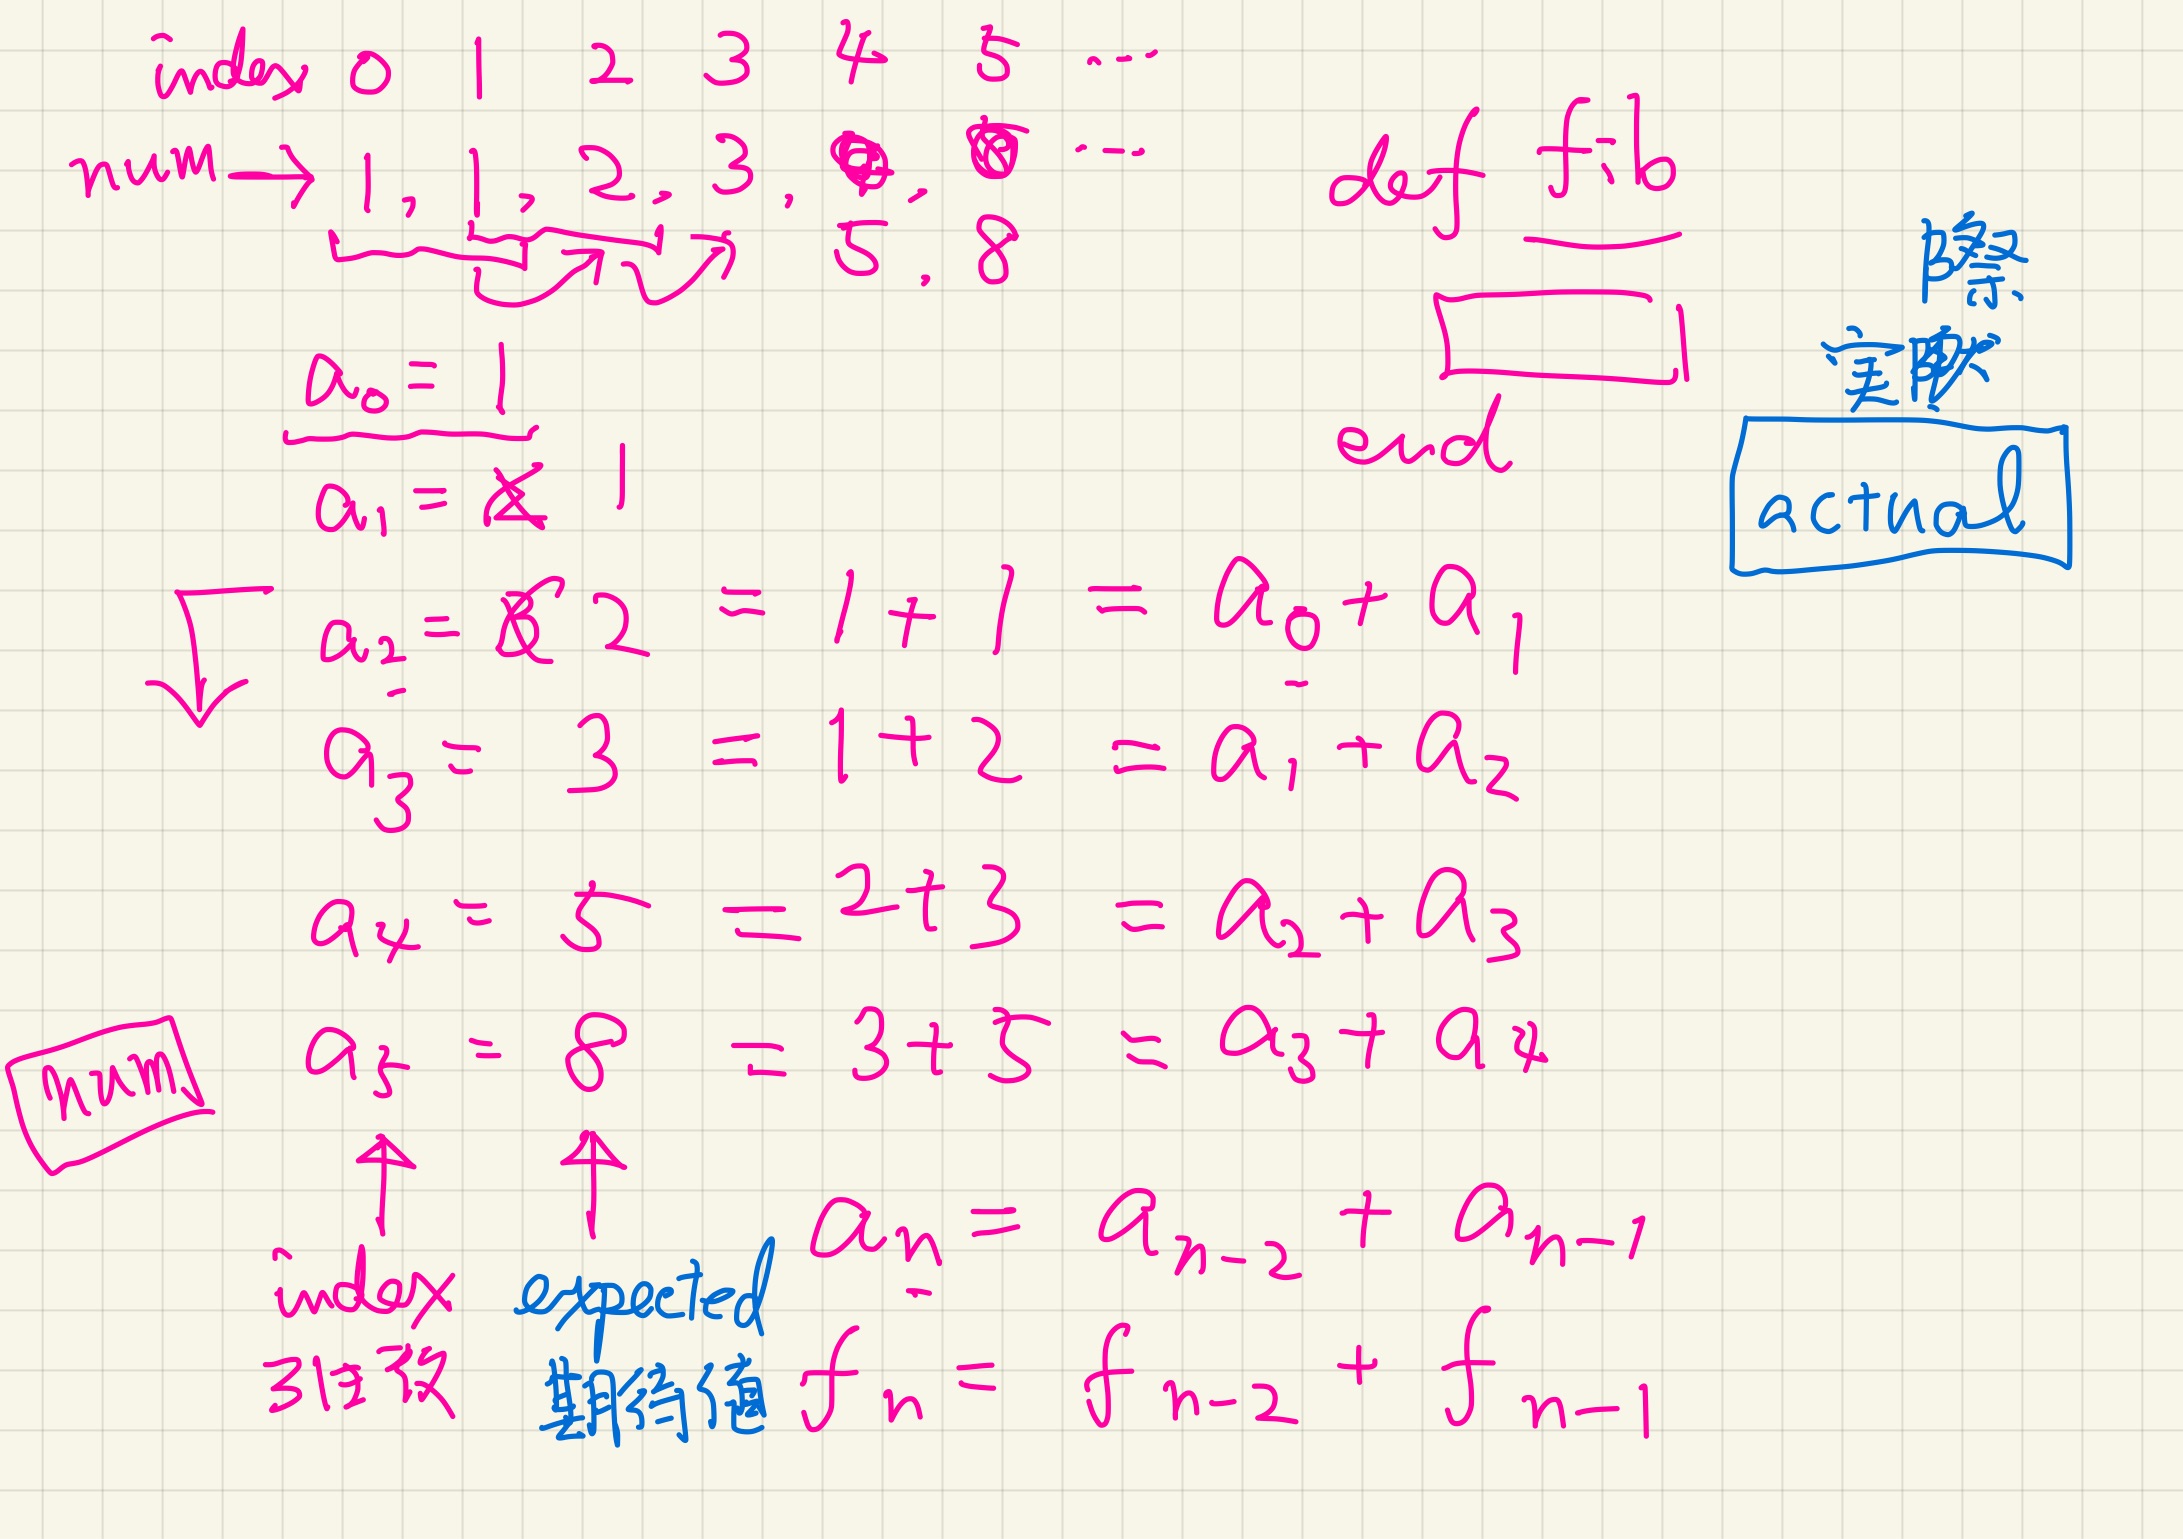 index 0 1 2 3 4 5 ...
num → 1, 1, 2, 3, 5, 8 ...
def fib
end
際
実際
actual
a₀ = 1
a₁ = 1
a₂ = 2 = 1 + 1 = a₀ + a₁
a₃ = 3 = 1 + 2 = a₁ + a₂
a₄ = 5 = 2 + 3 = a₂ + a₃
a₅ = 8 = 3 + 5 = a₃ + a₄
num
index
引数
expected
期待値
aₙ = aₙ₋₂ + aₙ₋₁
fₙ = fₙ₋₂ + fₙ₋₁